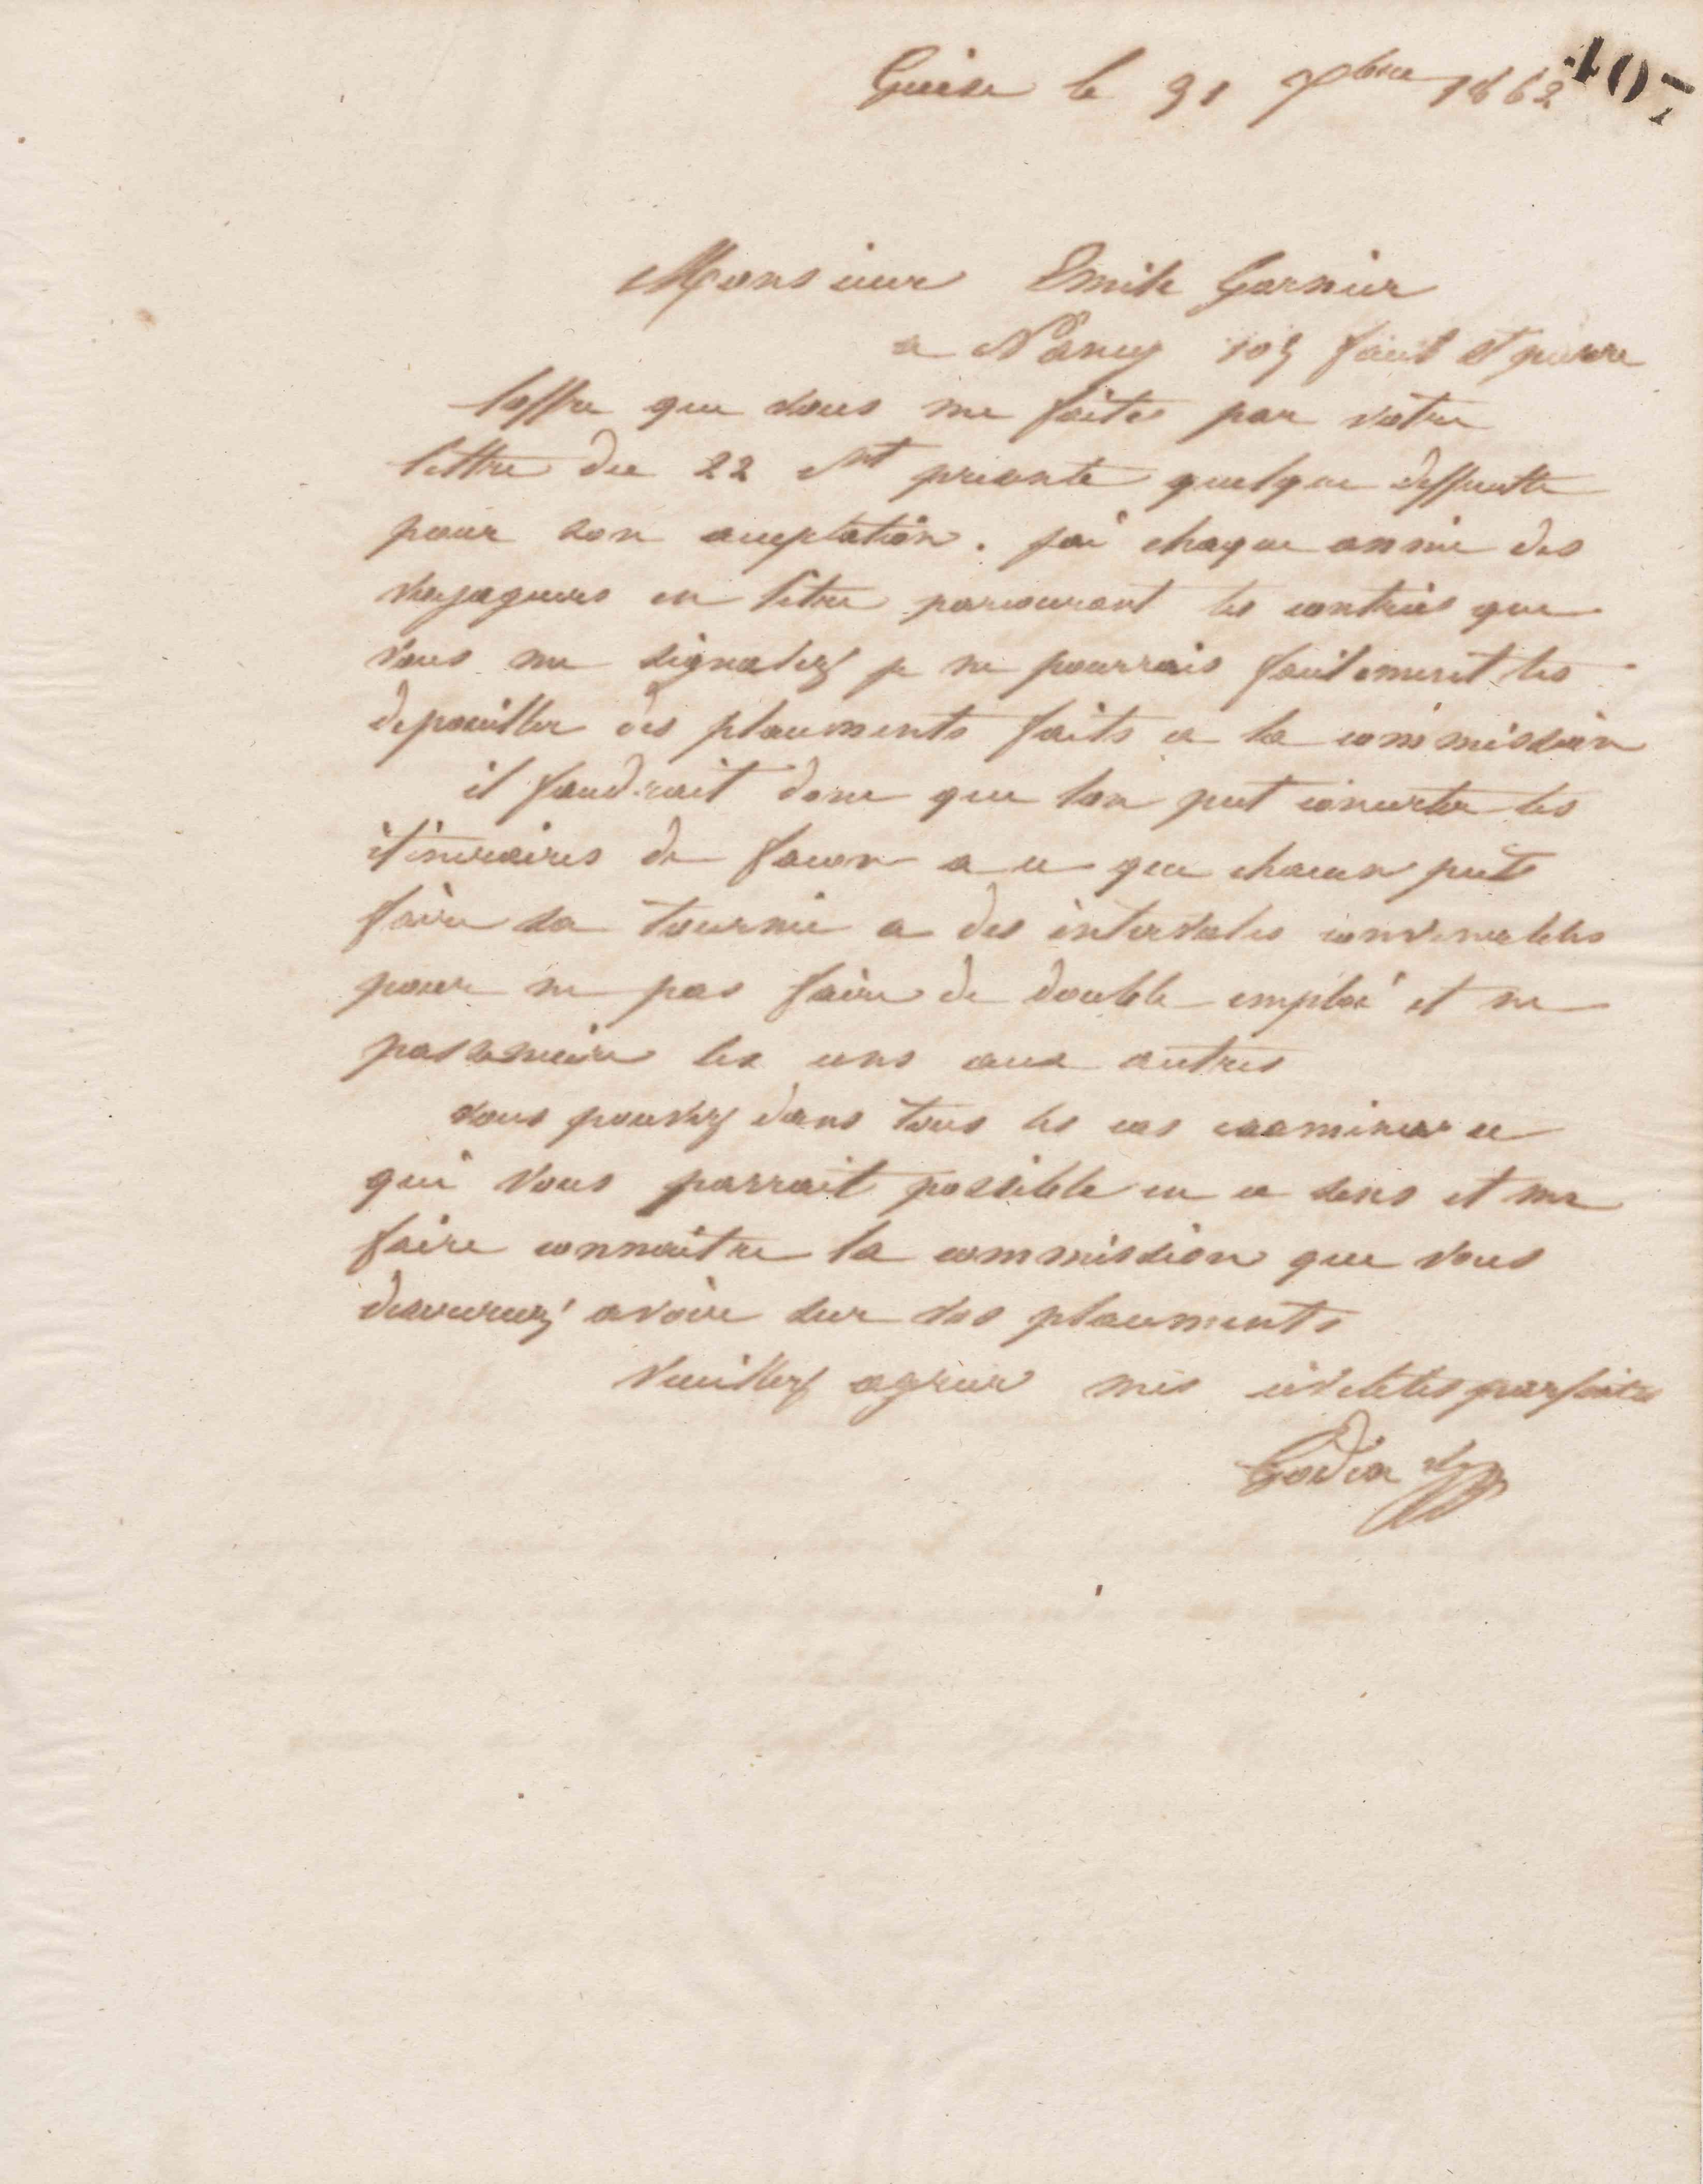 Guise le 31 7bre 1862
407
Monsieur Emile Garnier
a Nancy 105 faub St pierre
loffre que vous me faites par votre
lettre du 22 presente quelque difficulte
pour son acceptation. jai chaque annee des
voyageurs en titre parcourant les contrées que
vous me signalez je ne pourrais facilement les
depouiller des placements faits a la commission
il faudrait donc que lon put concerter les
itineraires de facon a ce que chacun put
faire sa tournée a des intervales convenables
pour ne pas faire de double emploi et ne
pas se nuire les uns aux autres
vous pouvez dans tous les cas examiner ce
qui vous parrait possible en ce sens et me
faire connaitre la commission que vous
avoir sur vos placements
Veuillez agréer mes civilités parfaites
Godin